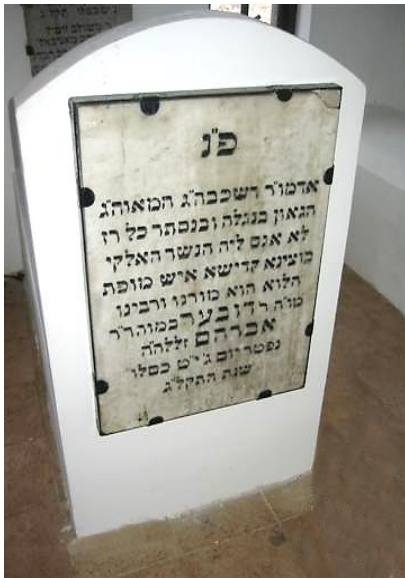 פ"נ
אדמו"ר דשכבה"ג המאוה"ג
הגאון בנגלה ובנסתר כל רז
לא אנס ליה הנשר האלקי
בוצינא קדישא איש מופת
הלוא הוא מורנו ורבינו
מו"ה ר דובער במוהר"ר
אברהם זללה"ה
נפטר יום ג' י"ט כסלו
שנת התקל"ג